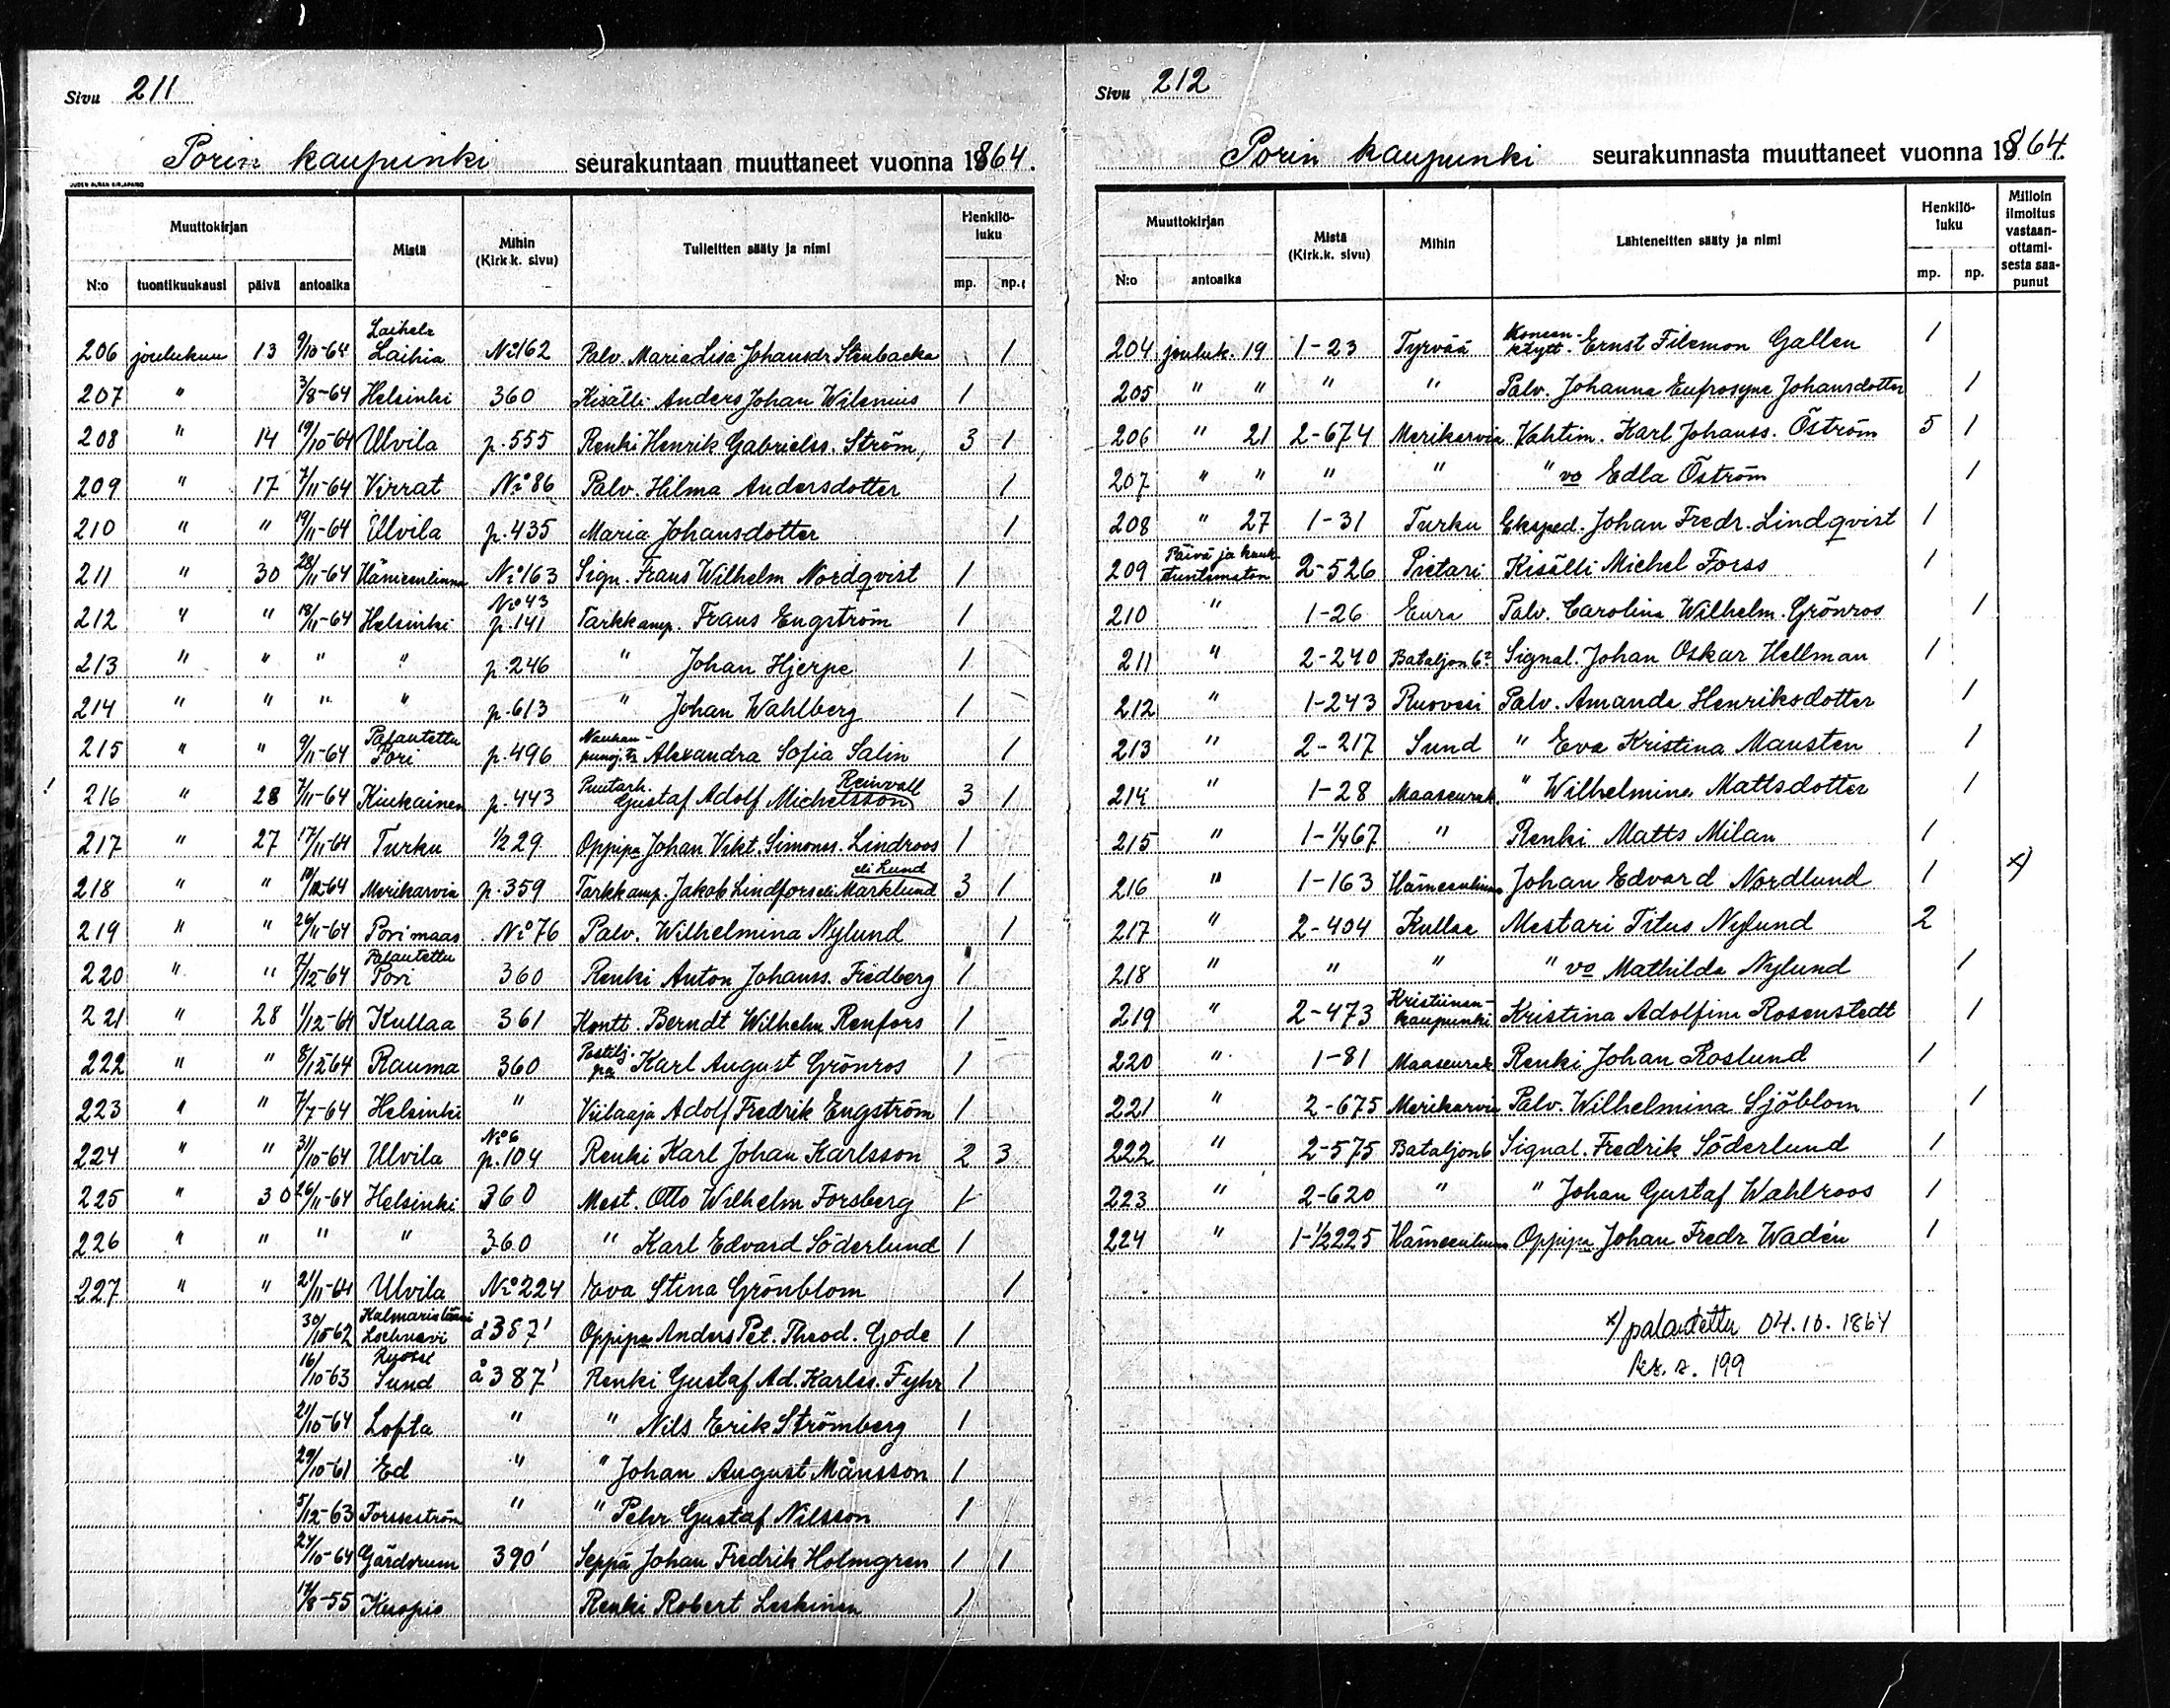 Sivu 211
Porin kaupunki seurakuntaan muuttaneet vuonna 1864.
Muuttokirjan Mistä Mihin (Kirk.k. sivu) Tulleitten sääty ja nimi Henkilöluku
N:o tuontikuukausi päivä antoaika mp. np.
Laihela
206 joulukuu 13 9/10-64 Laihia No 162 Palv. Maria Lisa Johansdr Stenbacka 1
207 " 3/8-64 Helsinki 360 Kisälli Anders Johan Wilenius 1
208 " 14 19/10-64 Ulvila p.555 Renki Henrik Gabrielss. Ström, 3 1
209 " 17 7/11-64 Virrat No 86 Palv. Hilma Andersdotter 1
210 " " 19/11-64 Ulvila p.435 Maria Johansdotter 1
211 " 30 28/11-64 Hämeenlinna No 163 Sign. Frans Wilhelm Nordqvist 1
No 43
212 " " 18/11-64 Helsinki p.141 Tarkkamp. Frans Engström 1
213 " " " " p.246 " Johan Hjerpe 1
214 " " " " p.613 " Johan Wahlberg 1
Palautettu
215 " " 9/11-64 Pori p.496 Alexandra Sofia Salin 1
Puutarh. Reinvall
216 " 28 7/11-64 Kiukainen p.443 Gustaf Adolf Michelsson 3 1
217 " 27 17/11-64 Turku 1/2 29 Oppipa Johan Vikt. Simonss. Lindroos 1
eli Lund
218 " " 10/12-64 Merikarvia p.359 Tarkkamp. Jakob Lindfors eli Marklund 3 1
219 " " 26/11-64 Pori maas No 76 Palv. Wilhelmina Nylund 1
Palautettu
220 " " 7/12-64 Pori 360 Renki Anton Johanss. Fredberg 1
221 " 28 1/12-64 Kullaa 361 Kontt. Berndt Wilhelm Renfors 1
222 " " 8/12 64 Rauma 360 Postilj. pa Karl August Grönros 1
223 " " 7/7-64 Helsinki " Viilaaja Adolf Fredrik Engström 1
No 6
224 " " 31/10-64 Ulvila p.104 Renki Karl Johan Karlsson 2 3
225 " 30 26/11-64 Helsinki 360 Mest. Otto Wilhelm Forsberg 1
226 " " " " 360 " Karl Edvard Söderlund 1
227 " " 21/11-64 Ulvila No 224 Eva Stina Grönblom 1
30/10-62 Kalmarin lääni å 387' Oppipa Anders Pet. Theod. Gode 1
Ruotsi
16/10-63 Sund å 387' Renki Gustaf Ad. Karlss. Fyhr 1
21/10-64 Lofta " " Nils Erik Strömberg 1
29/10-61 Ed " " Johan August Månsson 1
5/12-63 Torsseström " " Pehr Gustaf Nilsson 1
24/10-64 Gärdsrum 390' Seppä Johan Fredrik Holmgren 1 1
14/8-55 Kuopio Renki Robert Leskinen 1
Sivu 212
Porin kaupunki seurakunnasta muuttaneet vuonna 1864.
Muuttokirjan Mistä (Kirk.k. sivu) Mihin Lähteneitten sääty ja nimi Henkilöluku Milloin ilmoitus vastaanottamisesta saapunut
N:o antoaika mp. np.
204 jouluk. 19 1-23 Tyrvää Koneenkäytt. Ernst Filemon Gallen 1
205 " " " " Palv. Johanna Eufrosyne Johansdotter 1
206 " 21 2-674 Merikarvia Vahtim. Karl Johanss. Öström 5 1
207 " " " " " vo Edla Öström 1
208 " 27 1-31 Turku Eksped. Johan Fredr. Lindqvist 1
Päivä ja kuuk
209 tuntematon 2-526 Pietari Kisälli Michel Forss 1
210 " 1-26 Eura Palv. Carolina Wilhelm. Grönros 1
211 " 2-240 Bataljon 6 Signal. Johan Oskar Hellman 1
212 " 1-243 Ruovesi Palv. Amanda Henriksdotter 1
213 " 2-217 Sund " Eva Kristina Mansten 1
214 " 1-28 Maaseurak. " Wilhelmina Mattsdotter 1
215 " 1-1/4 67 " Renki Matts Milan 1
216 " 1-163 Hämeenlinna Johan Edvard Nordlund 1 x)
217 " 2-404 Kullaa Mestari Titus Nylund 2
218 " " " " vo Mathilda Nylund 1
219 " 2-473 Kristiinankaupunki Kristina Adolfina Rosenstedt 1
220 " 1-81 Maaseurak Renki Johan Roslund 1
221 " 2-675 Merikarvia Palv. Wilhelmina Sjöblom 1
222 " 2-575 Bataljon 6 Signal. Fredrik Söderlund 1
223 " 2-620 " " Johan Gustaf Wahlroos 1
224 " 1-1/2 225 Hämeenlinna Oppipa Johan Fredr Wadén 1
x) palautettu 04.10.1864
ks. s. 199